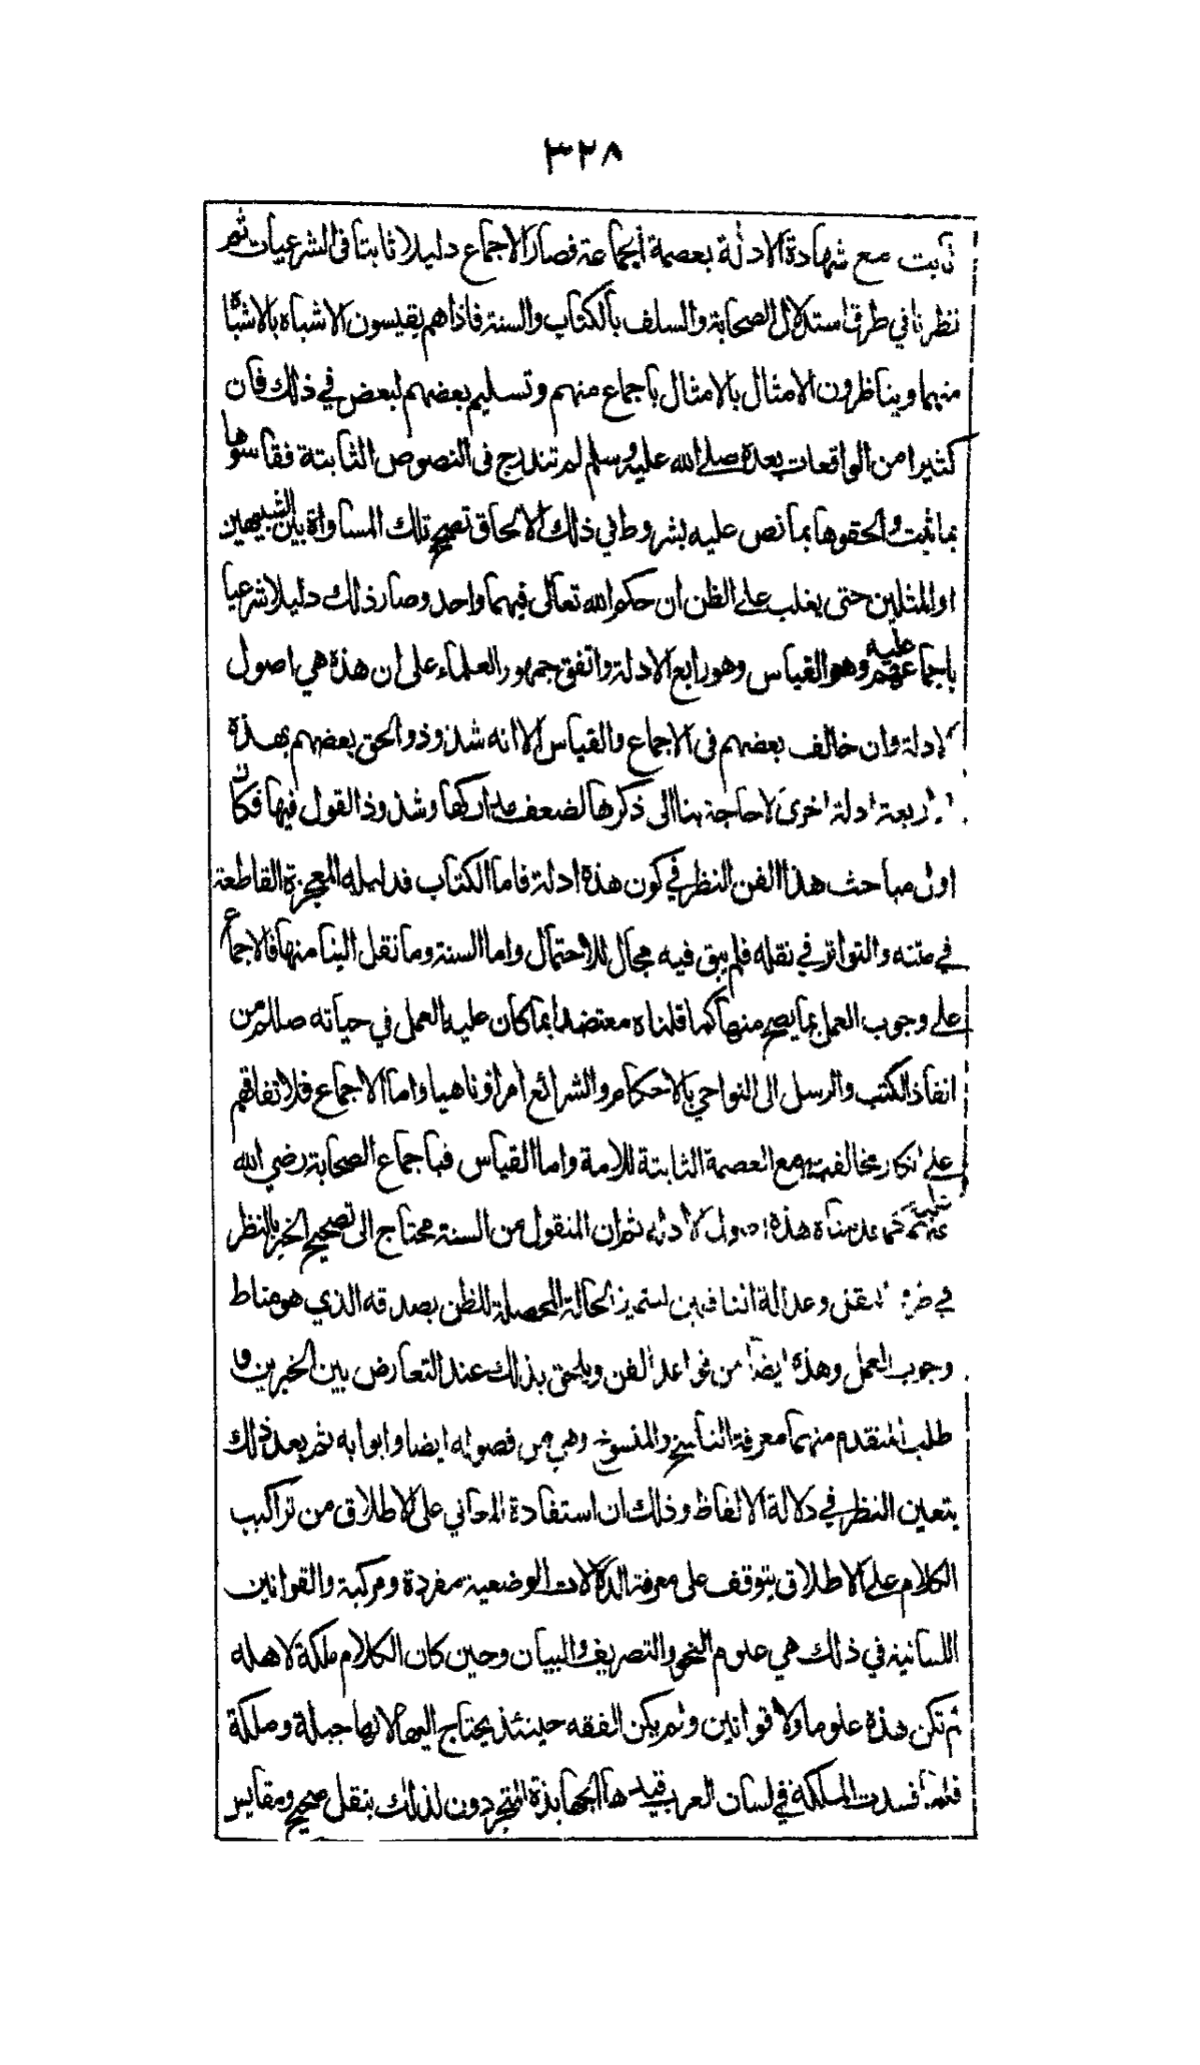 ٣٢٨
ثابت مع شهادة الادلة بعصمة الجماعة فصار الاجماع دليلا ثابتا فى الشرعيات ثم
نظرنا في طرق استدلال الصحابة والسلف بالكتاب والسنة فاذا هم يقيسون الاشباه بالاشباه
منهما ويناظرون الامثال بالامثال باجماع منهم وتسليم بعضهم لبعض في ذلك فان
كثيرا من الواقعات بعده صلى الله عليه وسلم لم تندرج فى النصوص الثابتة فقاسوها
بما ثبت والحقوها بما نص عليه بشروط في ذلك الالحاق تصحح تلك المساواة بين الشبيهين
او المثلين حتى يغلب على الظن ان حكم الله تعالى فيهما واحد وصار ذلك دليلا شرعيا
باجماعهم عليه وهو القياس وهو رابع الادلة واتفق جمهور العلماء على ان هذه هي اصول
الادلة وان خالف بعضهم فى الاجماع والقياس الا انه شذوذ والحق بعضهم بهذه
الاربعة ادلة اخرى لا حاجة بنا الى ذكرها لضعف مداركها وشذوذ القول فيها فكان
اول مباحث هذا الفن النظر في كون هذه ادلة فاما الكتاب فدليله المعجزة القاطعة
في متنه والتواتر في نقله فلم يبق فيه مجال للاحتمال واما السنة وما نقل الينا منها فالاجماع
على وجوب العمل بما يصح منها كما قلناه معتضدا بما كان عليه العمل في حياته صلالم من
انفاذ الكتب والرسل الى النواحي بالاحكام والشرائع امرا وناهيا واما الاجماع فلاتفاقهم
على انكار مخالفته مع العصمة الثابتة للامة واما القياس فباجماع الصحابة رضي الله
عنهم عليه كما قدمناه هذه اصول الادلة ثم ان المنقول من السنة محتاج الى تصحيح الخبر بالنظر
في طرق النقل وعدالة الناقلين لتتميز الحالة المحصلة للظن بصدقه الذي هو مناط
وجوب العمل وهذه ايضا من قواعد الفن ويلحق بذلك عند التعارض بين الخبرين و
طلب المتقدم منهما معرفة الناسخ والمنسوخ وهي من فصوله ايضا وابوابه ثم بعد ذلك
يتعين النظر في دلالة الالفاظ وذلك ان استفادة المعاني على الاطلاق من تراكيب
الكلام على الاطلاق يتوقف على معرفة الدلالات الوضعية مفردة ومركبة والقوانين
اللسانية في ذلك هي علوم النحو والتصريف والبيان وحين كان الكلام ملكة لاهله
لم تكن هذه علوما ولا قوانين ولم يكن الفقه حينئذ يحتاج اليها لانها جبلة وملكة
فلما فسدت الملكة في لسان العرب قيدها الجهابذة المتجردون لذلك بنقل صحيح ومقايس